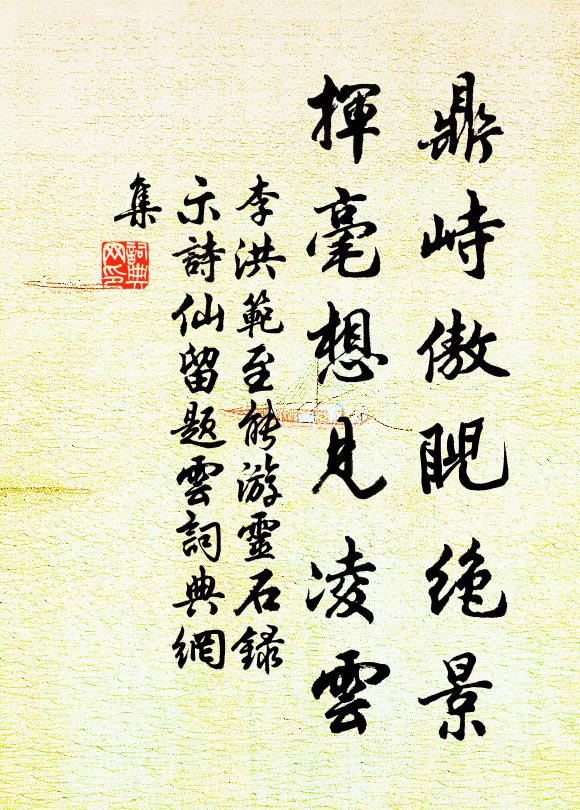 鼎峙傲睨绝景
揮毫想見凌雲
李洪範至能游靈石録
示詩仙留題雲詞典網
集
詞典
网印